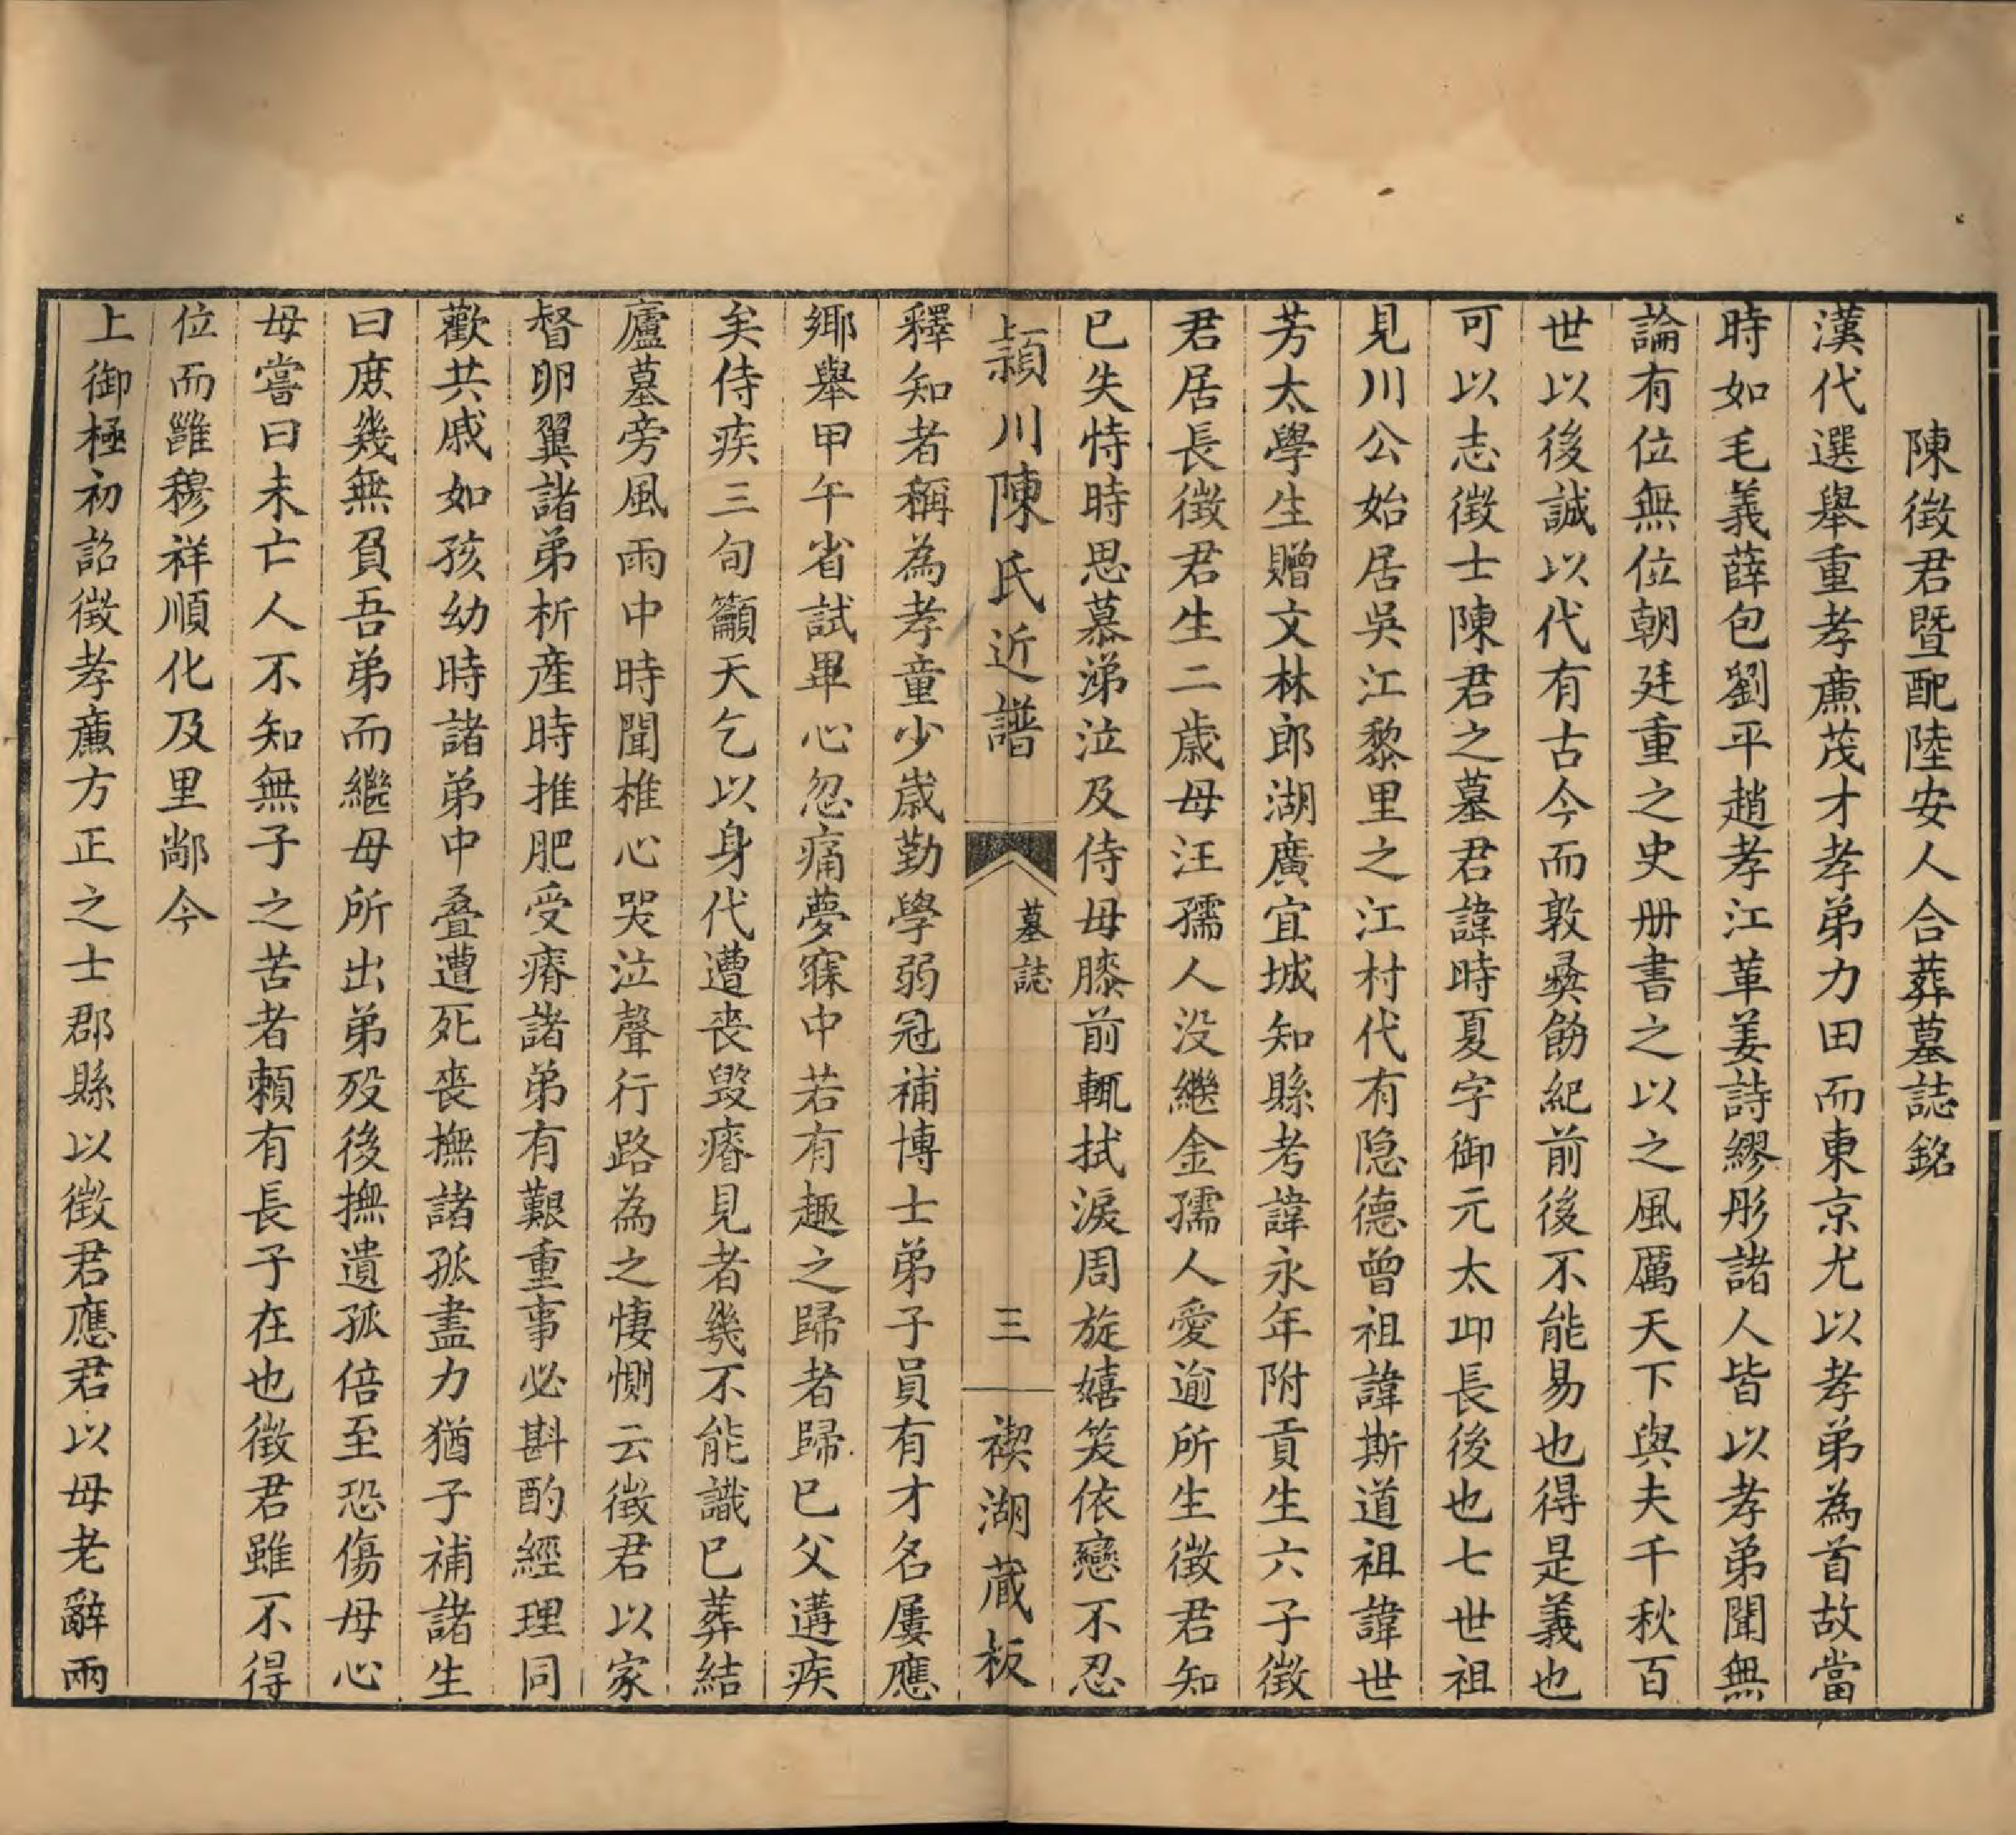 陳徵君暨配陸安人合葬墓誌銘
漢代選舉重孝亷茂才孝弟力田而東京尤以孝弟為首故當
時如毛義薛包劉平趙孝江革姜詩繆彤諸人皆以孝弟聞無
論有位無位朝廷重之史册書之以之風厲天下與夫千秋百
世以後誠以代有古今而敦彝飭紀前後不能易也得是義也
可以志徵士陳君之墓君諱時夏字御元太邱長後也七世祖
見川公始居吳江黎里之江村代有隐德曾祖諱斯道祖諱世
芳太學生贈文林郎湖廣宜城知縣考諱永年附貢生六子徵
君居長徵君生二歲母汪孺人没繼金孺人愛逾所生徵君知
已失恃時思慕涕泣及侍母膝前輒拭淚周旋嬉笑依戀不忍
潁川陳氏近譜
墓誌
三
禊湖蔵板
釋知者稱為孝童少歲勤學弱冠補博士弟子員有才名屢應
鄉舉甲午省試畢心忽痛夢寐中若有趣之歸者歸已父遘疾
矣侍疾三旬籲天乞以身代遭喪毀瘠見者幾不能識已葬結
廬墓旁風雨中時聞椎心哭泣聲行路為之悽惻云徵君以家
督卵翼諸弟析産時推肥受瘠諸弟有艱重事必斟酌經理同
歡共戚如孩幼時諸弟中叠遭死喪撫諸孤盡力猶子補諸生
曰庶幾無負吾弟而繼母所出弟殁後撫遺孤倍至恐傷母心
母嘗曰未亡人不知無子之苦者賴有長子在也徵君雖不得
位而雝穆祥順化及里鄰今
上御極初詔徵孝亷方正之士郡縣以徵君應君以母老辭兩